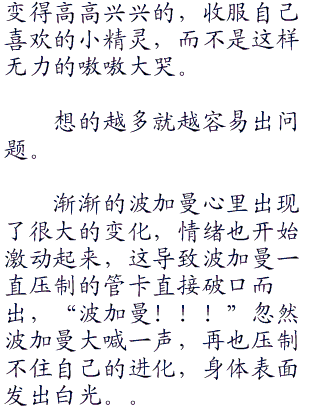 变得高高兴兴的，收服自己
喜欢的小精灵，而不是这样
无力的嗷嗷大哭。
想的越多就越容易出问
题。
渐渐的波加曼心里出现
了很大的变化，情绪也开始
激动起来，这导致波加曼一
直压制的管卡直接破口而
出，“波加曼！！！”忽然
波加曼大喊一声，再也压制
不住自己的进化，身体表面
发出白光。。